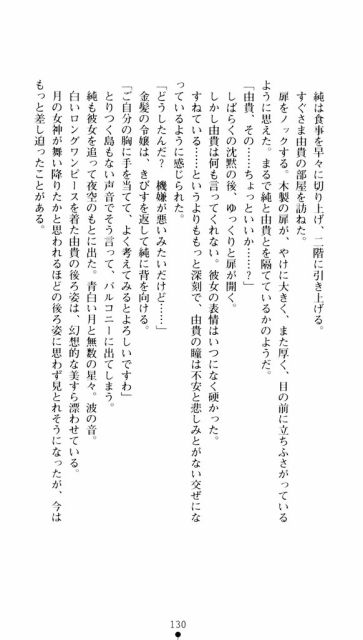 純は食事を早々に切り上げ、二階に引き上げる。
すぐさま由貴の部屋を訪ねた。
扉をノックする。木製の扉が、やけに大きく、また厚く、目の前に立ちふさがっている
ように思えた。まるで純と由貴とを隔てているかのようだ。
「由貴、その……ちょっといいか……？」
しばらくの沈黙の後、ゆっくりと扉が開く。
しかし由貴は何も言ってくれない。彼女の表情はいつになく硬かった。
すねている……というよりももっと深刻で、由貴の瞳は不安と悲しみとがない交ぜにな
っているように感じられた。
「どうしたんだ？　機嫌が悪いみたいだけど……」
金髪の令嬢は、きびすを返して純に背を向ける。
「ご自分の胸に手を当てて、よく考えてみるとよろしいですわ」
とりつく島もない声音でそう言って、バルコニーに出てしまう。
純も彼女を追って夜空のもとに出た。青白い月と無数の星々。波の音。
白いロングワンピースを着た由貴の後ろ姿は、幻想的な美すら漂わせている。
月の女神が舞い降りたかと思われるほどの後ろ姿に思わず見とれそうになったが、今は
もっと差し迫ったことがある。
130